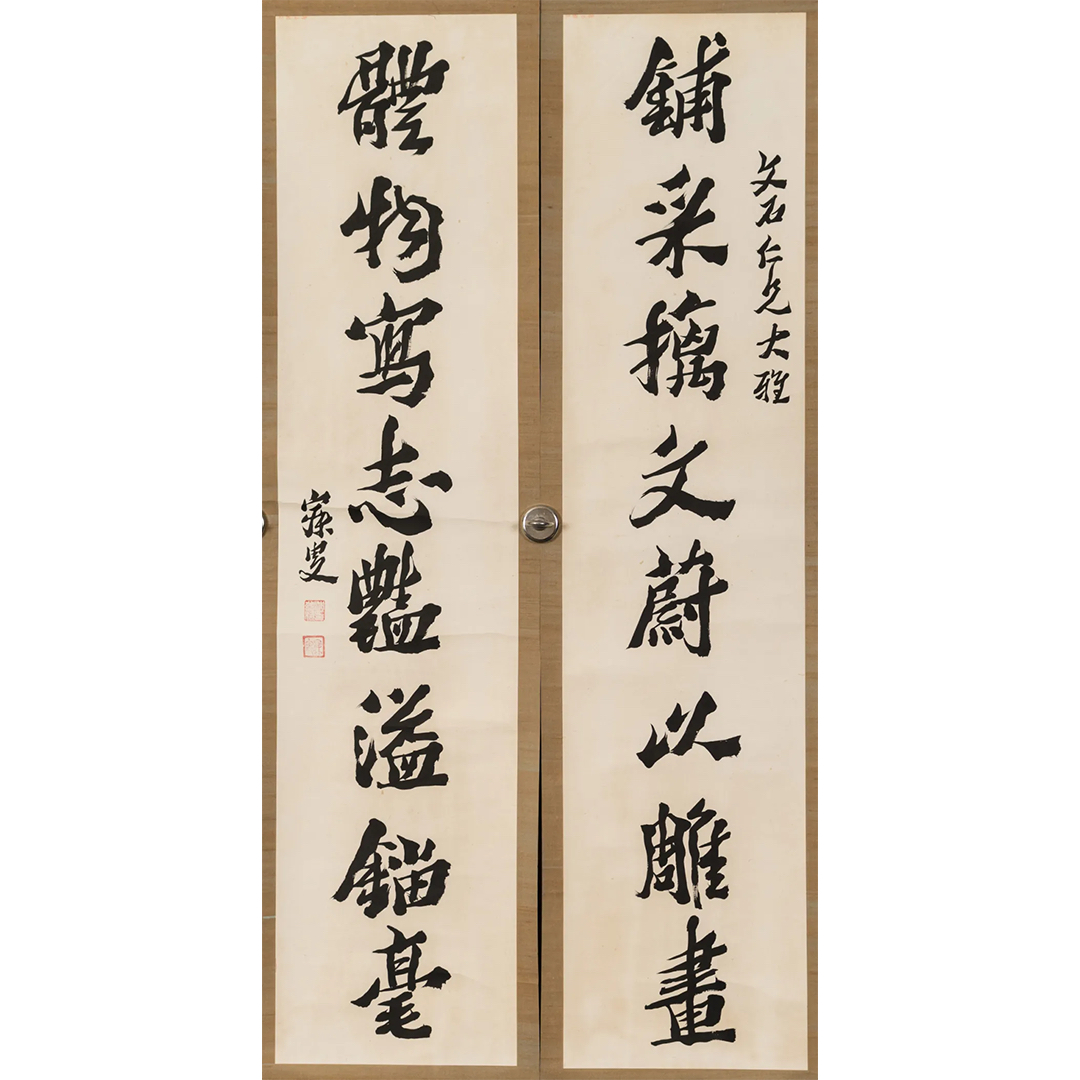 文石仁兄大雅
鋪采摛文蔚以雕畫
體物寫志艷溢錙毫
寐叟